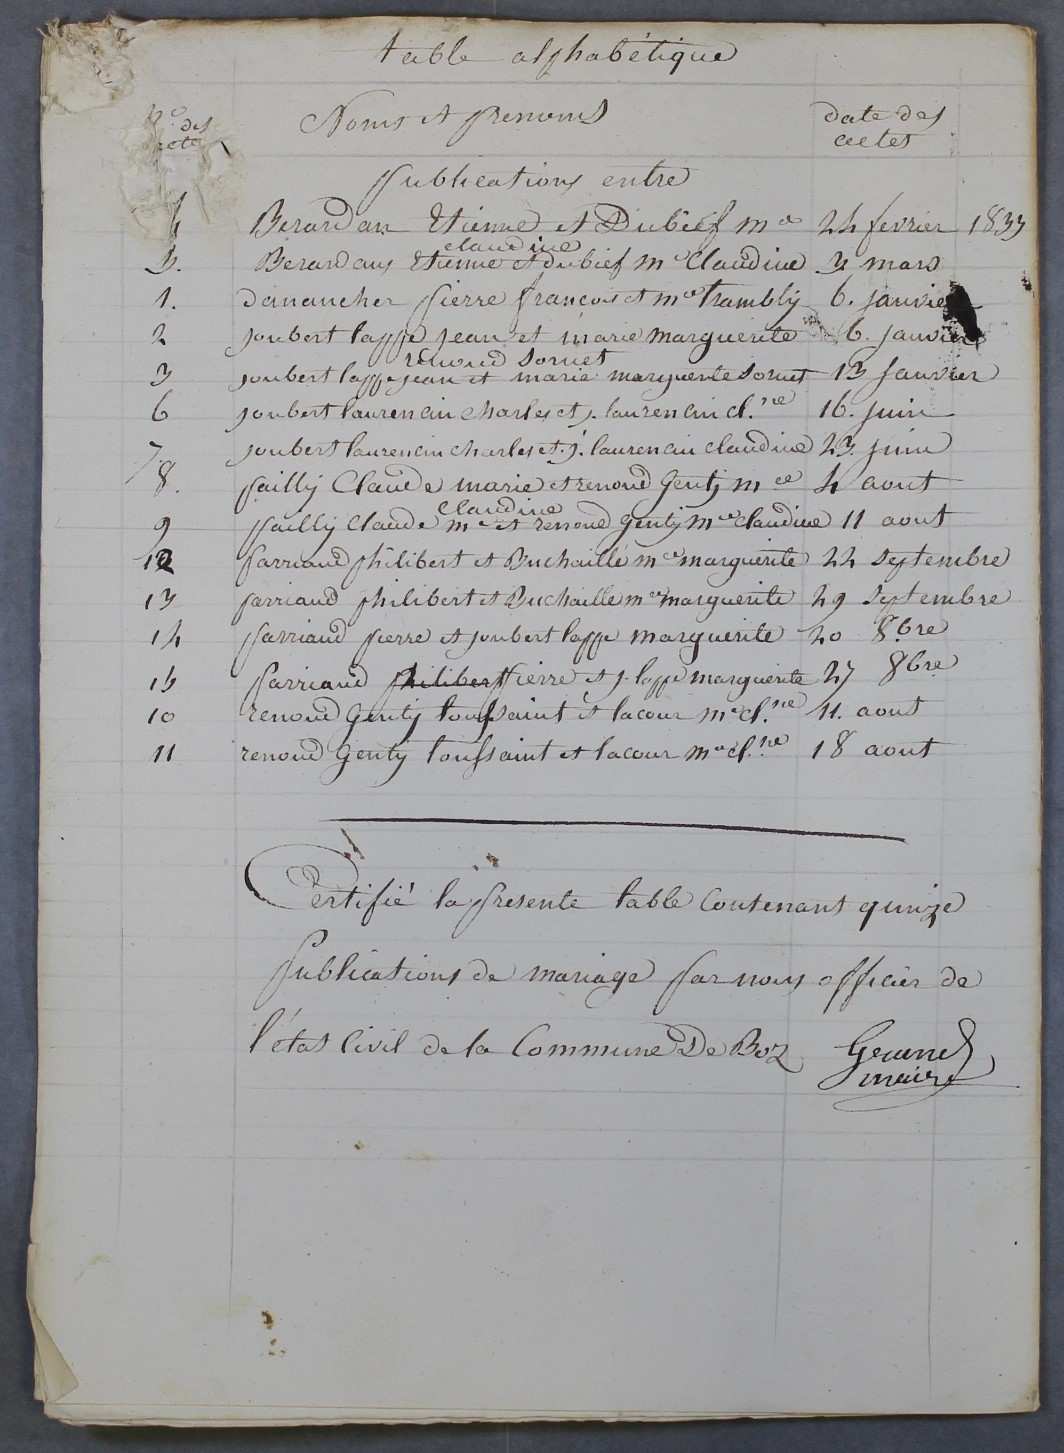 table alphabétique
N.o des actes Noms et prenoms date des actes
publications entre
4 Berardan Etienne et Dubief m.e 24 fevrier 1833
claudine
5. Berardan Etienne et dubief m.e Claudine 3 mars
1. danancher pierre francois et m.ie trambly 6. janvier
2 joubert lappe jean et marie marguerite 6. janvier
renoud Sornet
3 joubert lappe jean et marie marguerite Sornet 13 janvier
6 joubert laurencin charles et j. laurencin cl.ne 16. juin
7. joubert laurencin charles et j. laurencin claudine 23. juin
8. pailly Claude marie et renoud Genty m.ie 4 aout
claudine
9 pailly Claude m.e et renoud genty m.ie claudine 11 aout
12 parriaud philibert et Buchaille m.ie marguerite 22 septembre
13 parriaud philibert et Buchaille m.ie marguerite 29 septembre
14 parriaud pierre et joubert lappe marguerite 20 8.bre
15 parriaud philibert pierre et j. lappe marguerite 27 8bre
10 renoud Genty toussaint et lacour m.e cl.ne 11. aout
11 renoud Genty toussaint et lacour m.e cl.ne 18 aout
Certifié la presente table Contenant quinze
publications de mariage par nous officier de
l'état Civil de la Commune De Boz
maire